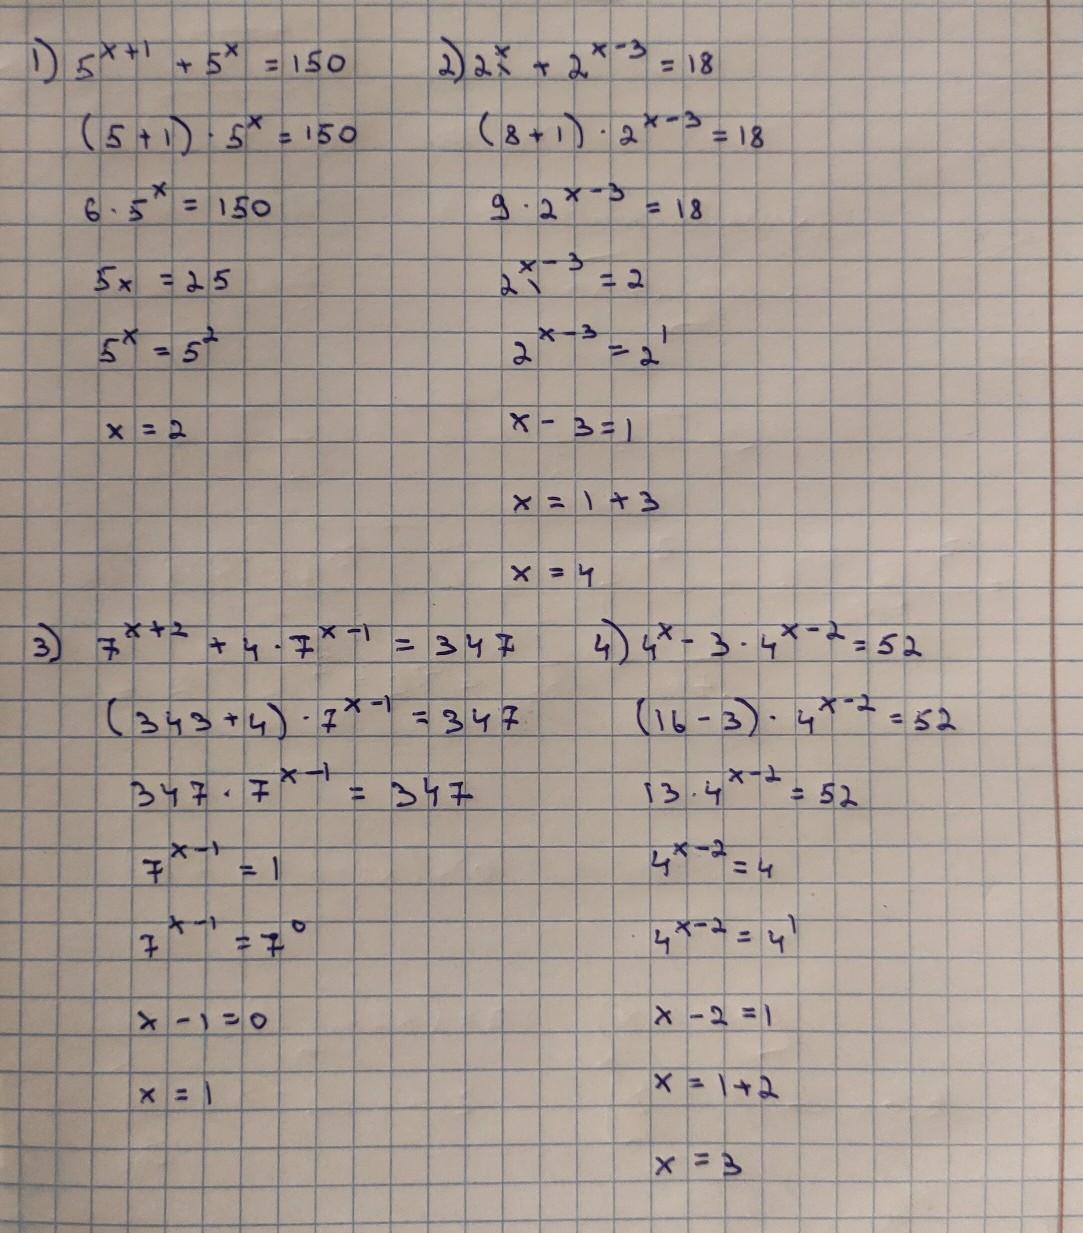 1) 5^{x+1} + 5^x = 150
(5+1) · 5^x = 150
6 · 5^x = 150
5x = 25
5^x = 5^2
x = 2
2) 2^x + 2^{x-3} = 18
(8+1) · 2^{x-3} = 18
9 · 2^{x-3} = 18
2^{x-3} = 2
2^{x-3} = 2^1
x - 3 = 1
x = 1 + 3
x = 4
3) 7^{x+2} + 4 · 7^{x-1} = 347
(343+4) · 7^{x-1} = 347
347 · 7^{x-1} = 347
7^{x-1} = 1
7^{x-1} = 7^0
x - 1 = 0
x = 1
4) 4^x - 3 · 4^{x-2} = 52
(16-3) · 4^{x-2} = 52
13 · 4^{x-2} = 52
4^{x-2} = 4
4^{x-2} = 4^1
x - 2 = 1
x = 1+2
x = 3